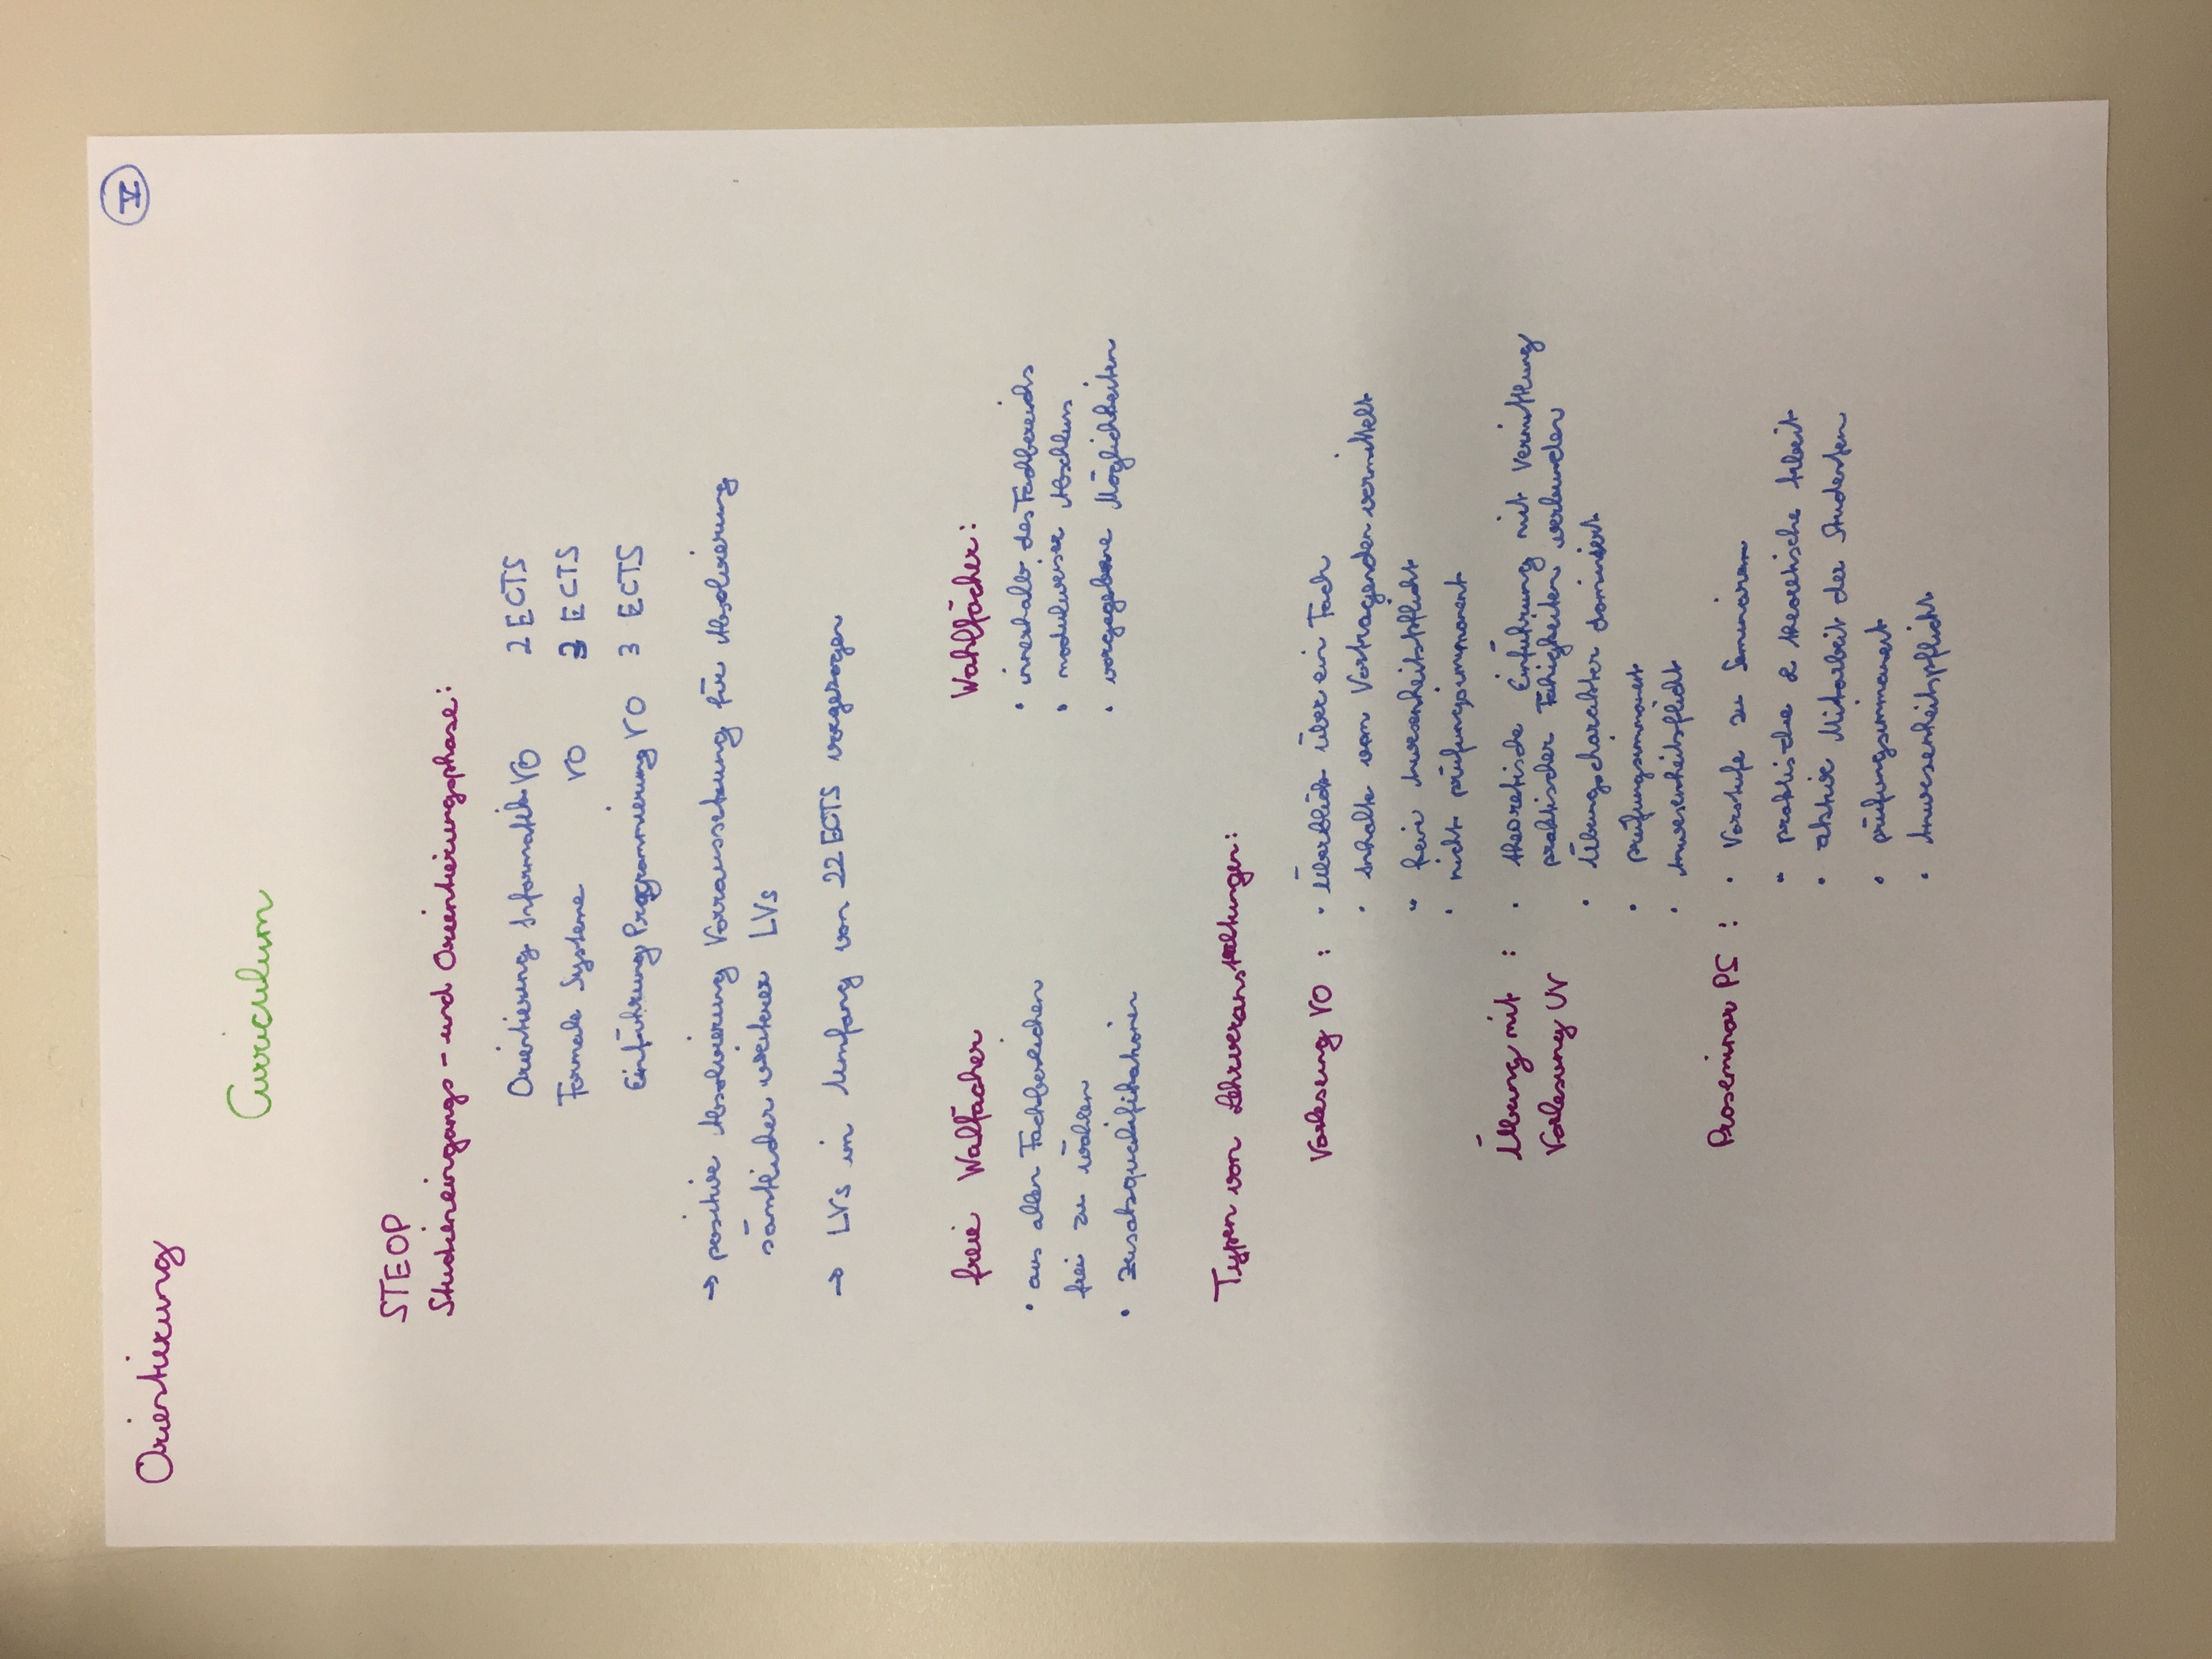 Orientierung
V
Curriculum
STEOP
Studieneingangs- und Orientierungsphase:
Orientierung Informatik VO 2 ECTS
Formale Systeme VO 3 ECTS
Einführung Programmierung VO 3 ECTS
→ positive Absolvierung Vorraussetzung für Absolvierung
sämtlicher weiterer LVs
→ LVs im Umfang von 22 ECTS vorgezogen
freie Walfächer
• aus allen Fachbereichen
frei zu wählen
• Zusatzqualifikationen
Wahlfächer:
• innerhalb des Fachbereichs
• modulweiser Abschluss
• vorgegebene Möglichkeiten
Typen von Lehrveranstaltungen:
Vorlesung VO : • Überblick über ein Fach
• Inhalte vom Vortragenden vermittelt
• keine Anwesenheitspflicht
• nicht prüfungsimmanent
Übung mit : • theoretische Einführung mit Vermittlung
Vorlesung UV praktischer Fähigkeiten verbunden
• Übungscharakter dominiert
• prüfungsimmanent
• Anwesenheitspflicht
Proseminar PS : • Vorstufe zu Seminaren
• praktische & theoretische Arbeit
• aktive Mitarbeit der Studenten
• prüfungsimmanent
• Anwesenheitspflicht